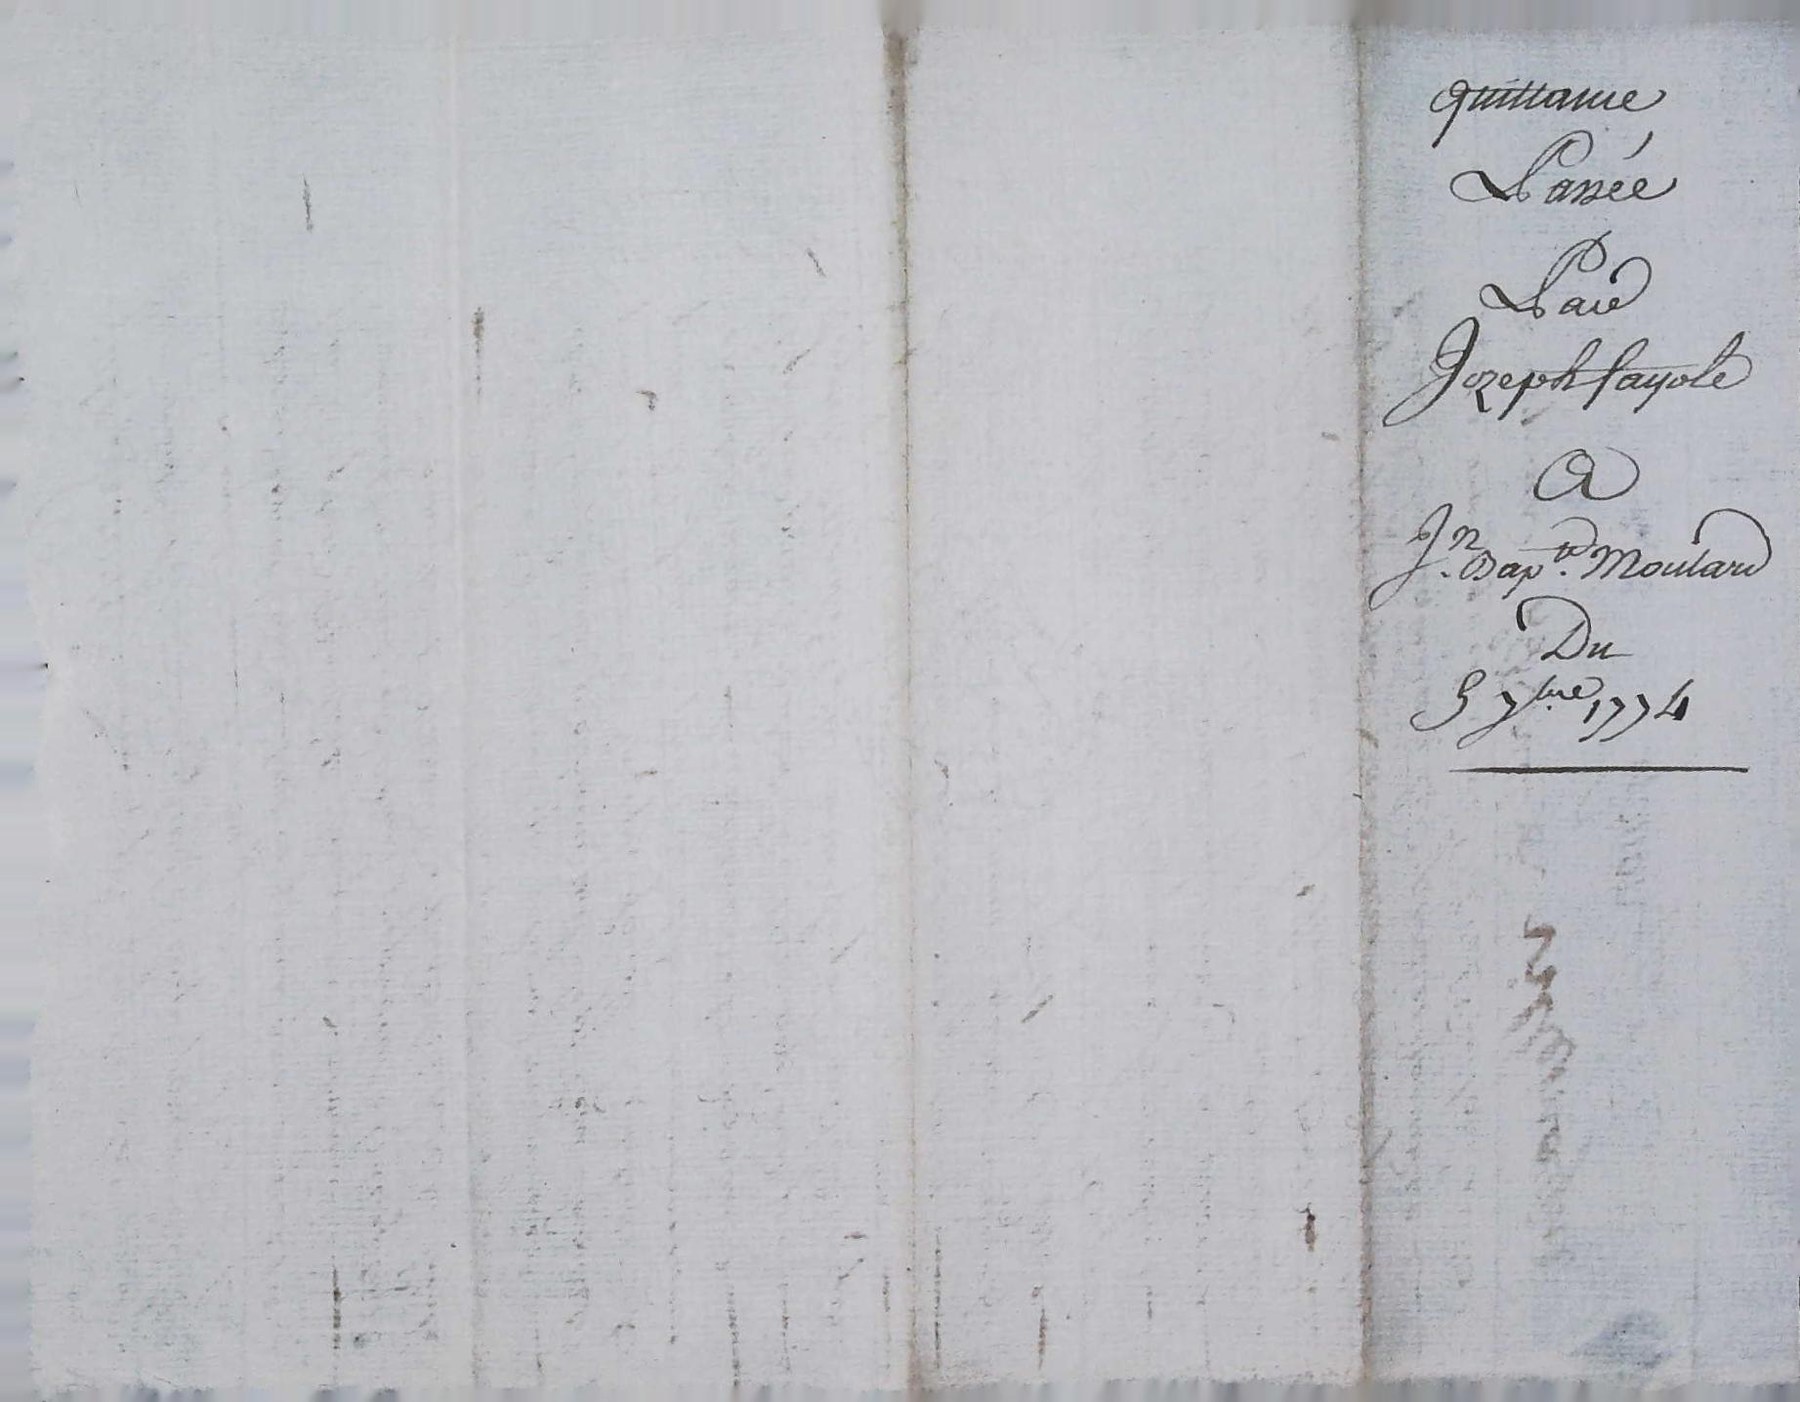 quittance
Passée
Par
Jozeph fayole
A
Jn. Bapte. Moulard
Du
5 7bre 1774